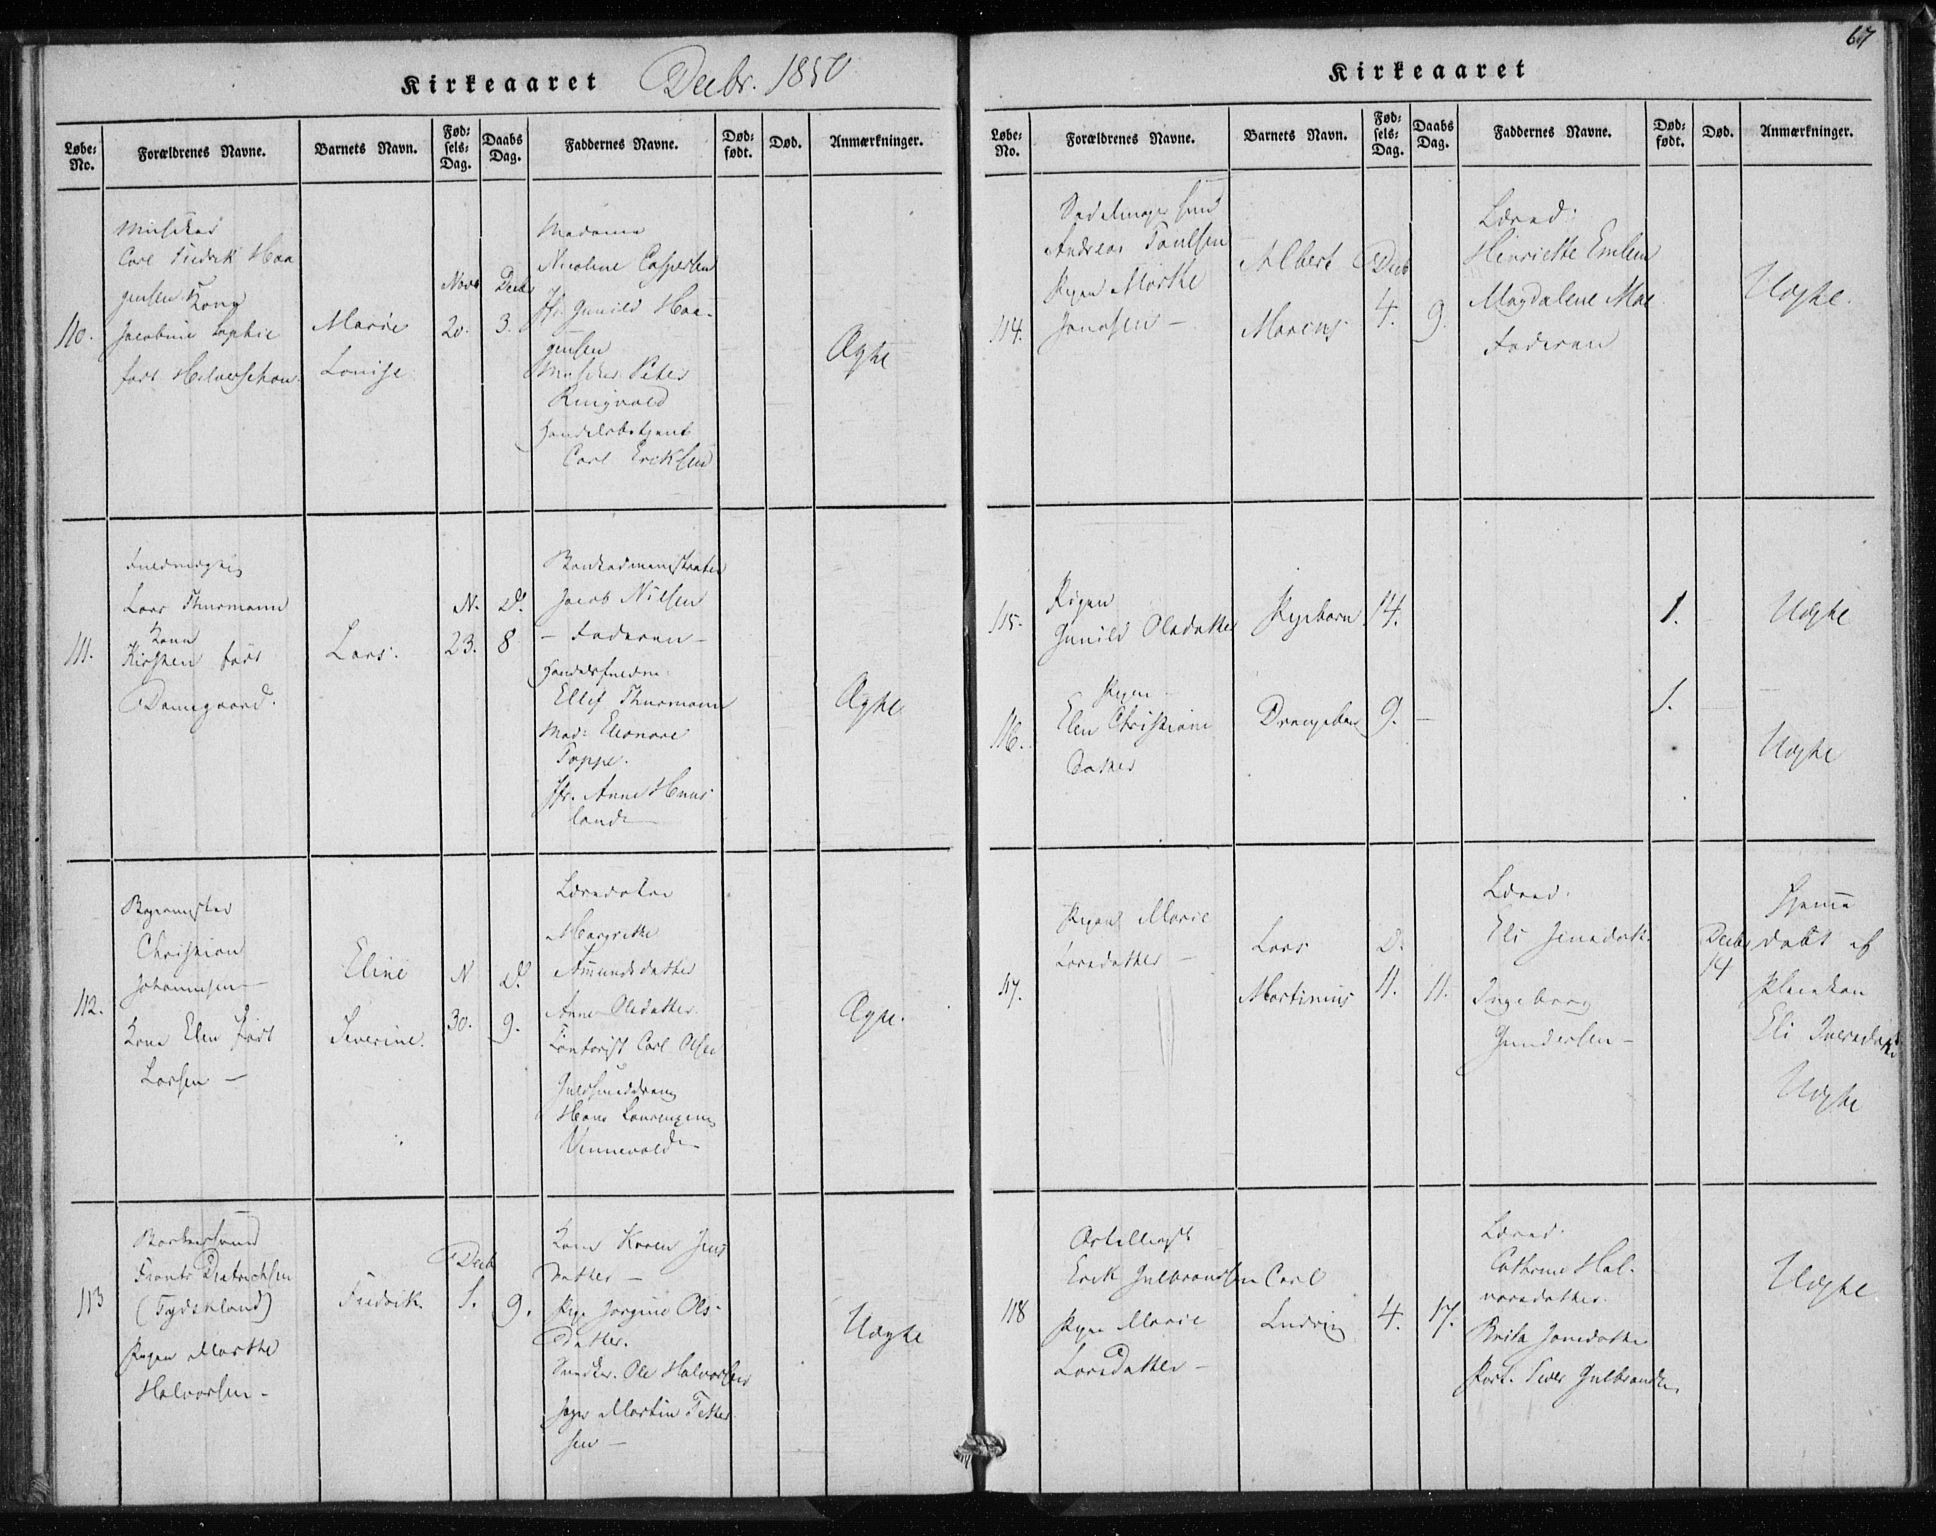 67
Kirkeaaret Decbr. 1850
Løbe-No. Forældrenes Navne. Barnets Navn. Fødsels-Dag. Daabs Dag. Faddernes Navne. Dødfødt. Død. Anmærkninger.
110.
Musiker
Carl Fredrik Haa
gensen Kone
Jacobine Sophie
født
Marie
Louise
Novr
20.
Decbr
3.
Madame
Nicoline Caspersen
Jfr. Gunild Haa-
gensen
Musiker Peter
Ringvold
Handelsbetjent
Carl Eriksen
Ægte
111.
Fuldmægtig
Lars Thurmann
Kone
Kirsten født
Damegaard.
Lars.
N.
23.
D.
8
Bankadministrator
Jacob Nilsen
- Faderen -
Handelsfuldm.
Ellef Thurmann
Mad: Eleonore
Poppe.
Jfr. Anne Huus
land
Ægte
112.
Bagermester
Christian
Johannesen
Kone Elen født
Larsen -
Eline
Severine.
N
30.
D.
9.
Larsdatter
Margrethe
Amundsdatter
Anne Olsdatter.
Contorist Carl Olsen
Guldsmeddreng
Hans Laurenzen
Vennevold
Ægte.
113
Frants Dietrichsen
(Tydskland)
Pigen Marthe
Halvorsen -
Fredrik
Decb
1.
9.
Kone Karen Jens
datter -
Pige Jørgine Ols-
datter.
Snedker. Ole Halvorsen
Martin Petter
sen -
Uægte
Kirkeaaret
Løbe-No. Forældrenes Navne. Barnets Navn. Fødsels-Dag. Daabs Dag. Faddernes Navne. Dødfødt. Død. Anmærkninger.
114.
Sadelmagersvend
Andreas Paulsen
Pigen Marthe
Jonassen -
Albert
Marius
Decb
4.
9.
Henriette Emlem
Magdalene Moe
Faderen
Uægte.
115.
Pigen
Gunild Olsdatter
Pigebarn
14.
1.
Uægte
116.
Pigen
Elen Christians
Datter
Drengebarn
9.
-
1.
Uægte
117.
Pigen Marie
Larsdatter -
Lars
Martinius
D.
11.
11.
Eli
Ingeborg
Gundersen -
Decbr
14
Hjemme
døbt af
Eli Iversdatter
Uægte
118
Artillerist
Erik Gulbrandsen
Pigen Marie
Larsdatter -
Carl
Ludvig
4.
17.
Cathrine Hal-
vorsdatter.
Brita Jonsdatter
Iver Gulbrandsen
Uægte